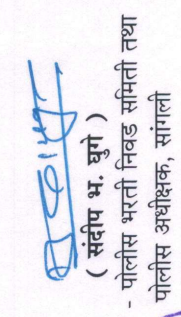 ( संदीप भ. घुगे )
- पोलीस भरती निवड समिती तथा
पोलीस अधीक्षक, सांगली